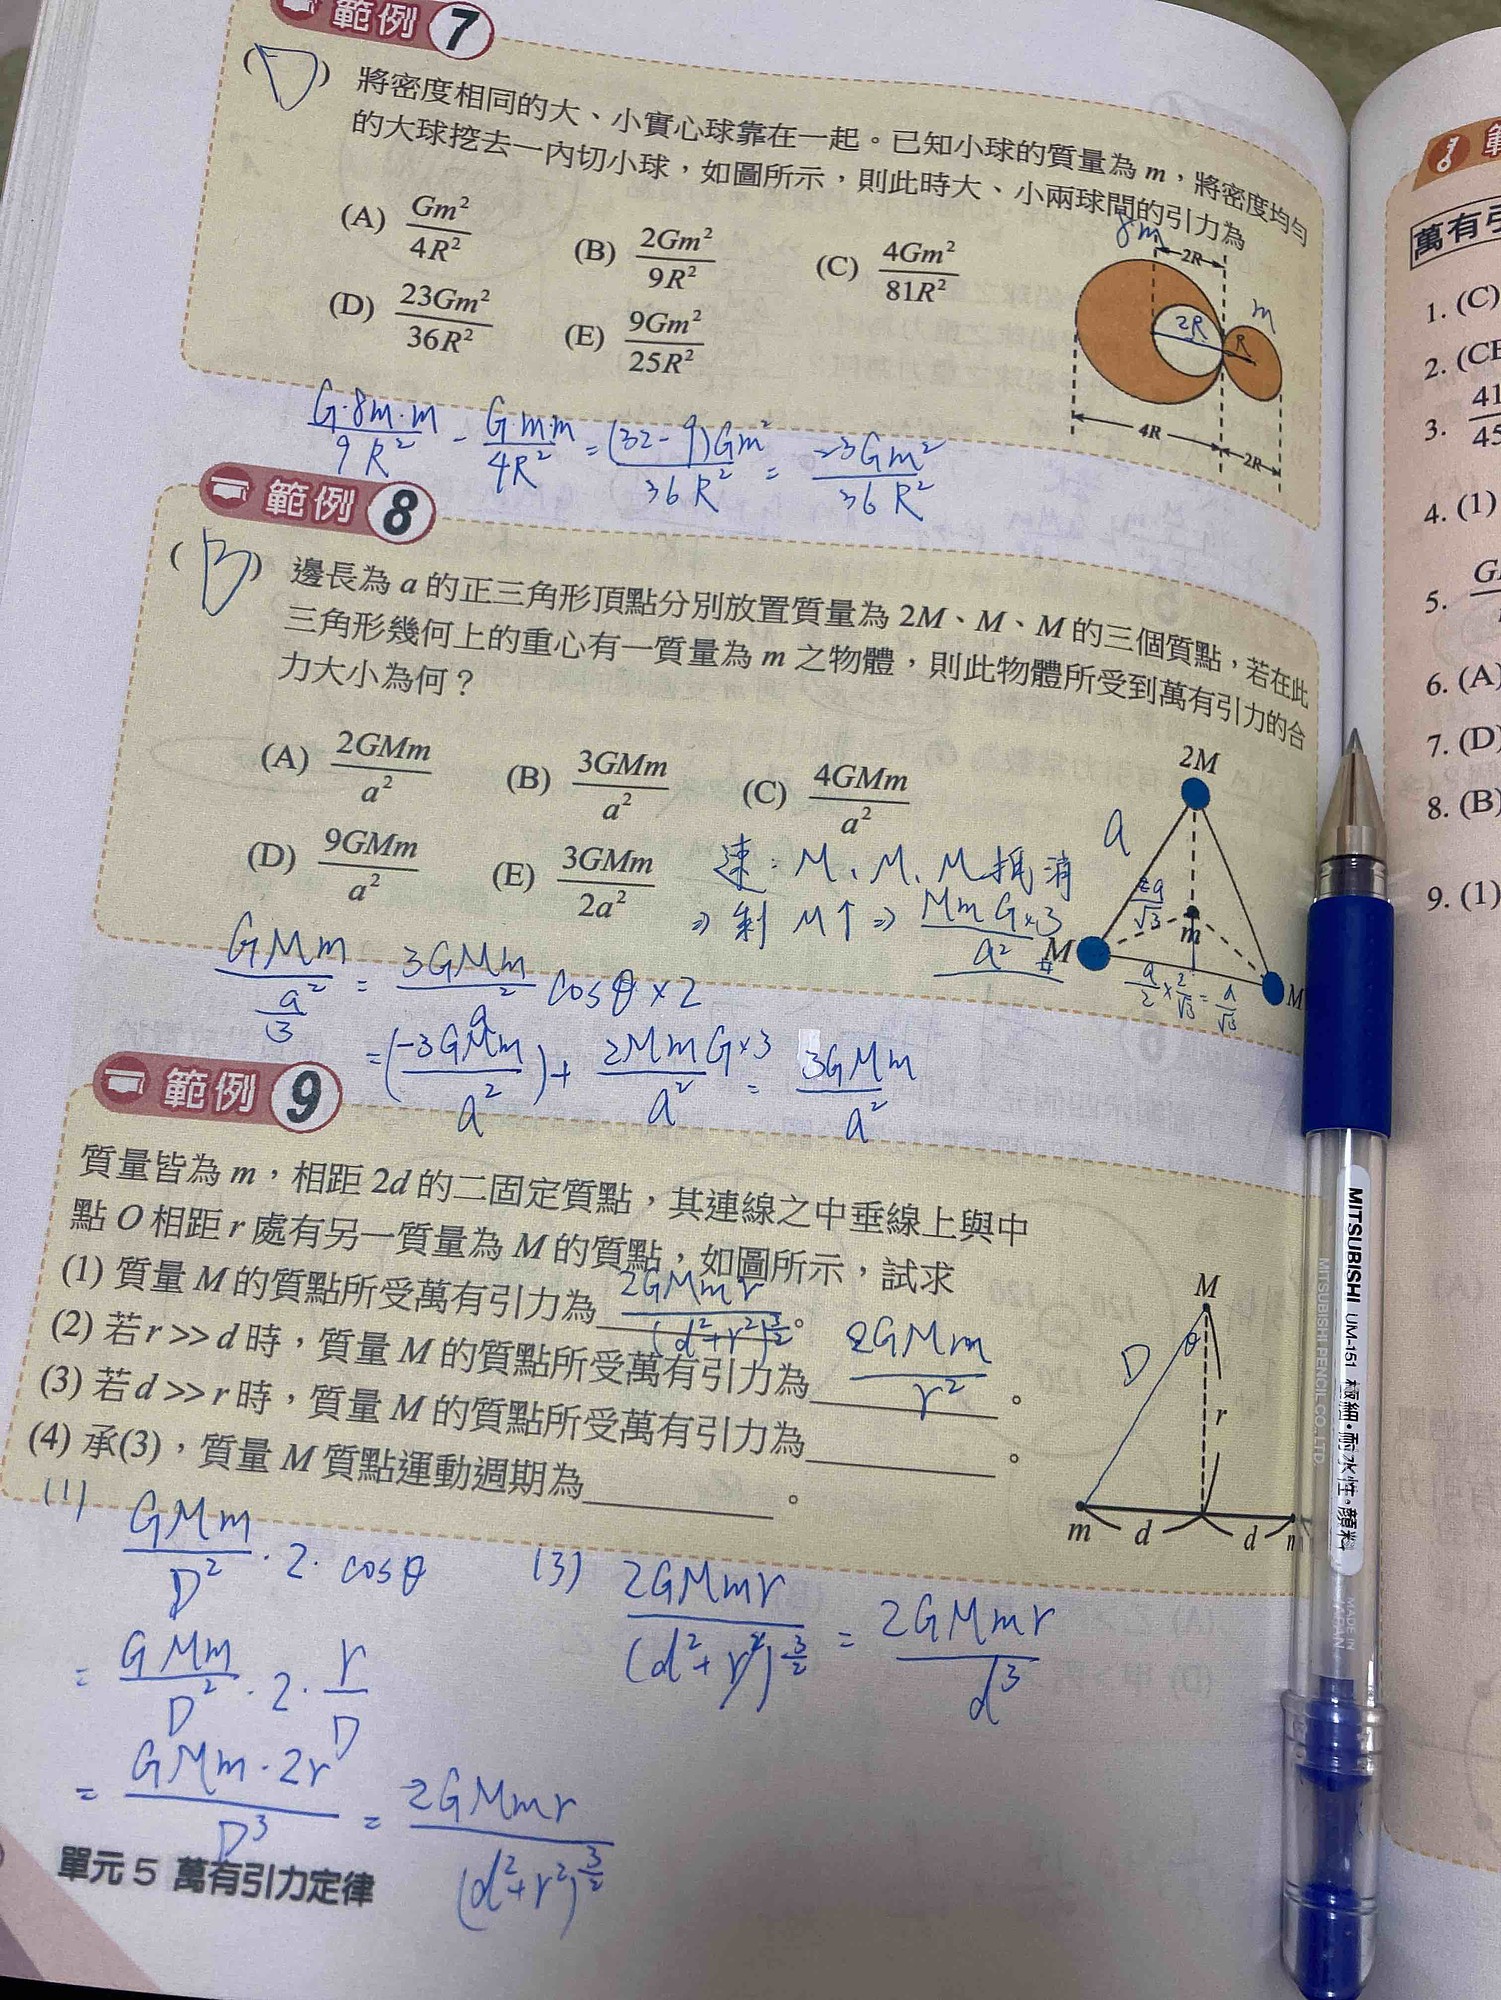 範例 7
(D) 將密度相同的大、小實心球靠在一起。已知小球的質量為 m，將密度均勻
的大球挖去一內切小球，如圖所示，則此時大、小兩球間的引力為
(A) Gm²/4R² (B) 2Gm²/9R² (C) 4Gm²/81R²
(D) 23Gm²/36R² (E) 9Gm²/25R²
8m
2R
m
2R
R
4R
2R
G·8m·m/9R² - G·m·m/4R² = (32-9)Gm²/36R² = 23Gm²/36R²
範例 8
(B) 邊長為 a 的正三角形頂點分別放置質量為 2M、M、M 的三個質點，若在此
三角形幾何上的重心有一質量為 m 之物體，則此物體所受到萬有引力的合
力大小為何？
(A) 2GMm/a² (B) 3GMm/a² (C) 4GMm/a²
(D) 9GMm/a² (E) 3GMm/2a²
2M
a
m
M
M
a/2 × 2/√3 = a/√3
速：M、M、M 抵消
⇒ 剩 M↑ ⇒ MmG×3/a²
GMm/(a²/3) = 3GMm/a² cosθ×2
= (-3GMm/a²) + 2MmG×3/a² = 3GMm/a²
範例 9
質量皆為 m，相距 2d 的二固定質點，其連線之中垂線上與中
點 O 相距 r 處有另一質量為 M 的質點，如圖所示，試求
(1) 質量 M 的質點所受萬有引力為 2GMmr/(d²+r²)^(3/2)。
(2) 若 r >> d 時，質量 M 的質點所受萬有引力為 2GMm/r²。
(3) 若 d >> r 時，質量 M 的質點所受萬有引力為 。
(4) 承(3)，質量 M 質點運動週期為 。
M
θ
D
r
m d d
(1) GMm/D² · 2 · cosθ
= GMm/D² · 2 · r/D
= GMm·2r/D³ = 2GMmr/(d²+r²)^(3/2)
(3) 2GMmr/(d²+r²)^(3/2) = 2GMmr/d³
單元 5 萬有引力定律
萬有引
1. (C)
3. 41/45
4. (1)
5.
6. (A)
7. (D)
8. (B)
9. (1)
MITSUBISHI UM-151 極細·耐水性·顏料
MITSUBISHI PENCIL CO., LTD.
MADE IN JAPAN